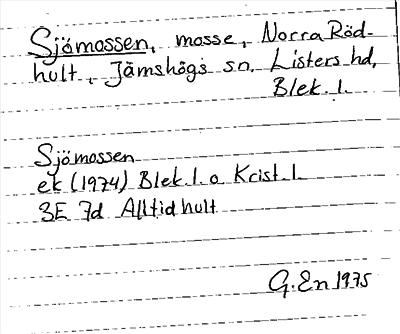 Sjömossen, mosse, Norra Röd-
hult, Jämshögs sn, Listers hd,
Blek. l.
Sjömossen
ek (1974) Blek. l. o Krist. l.
3E 7d Alltidhult
G. En 1975